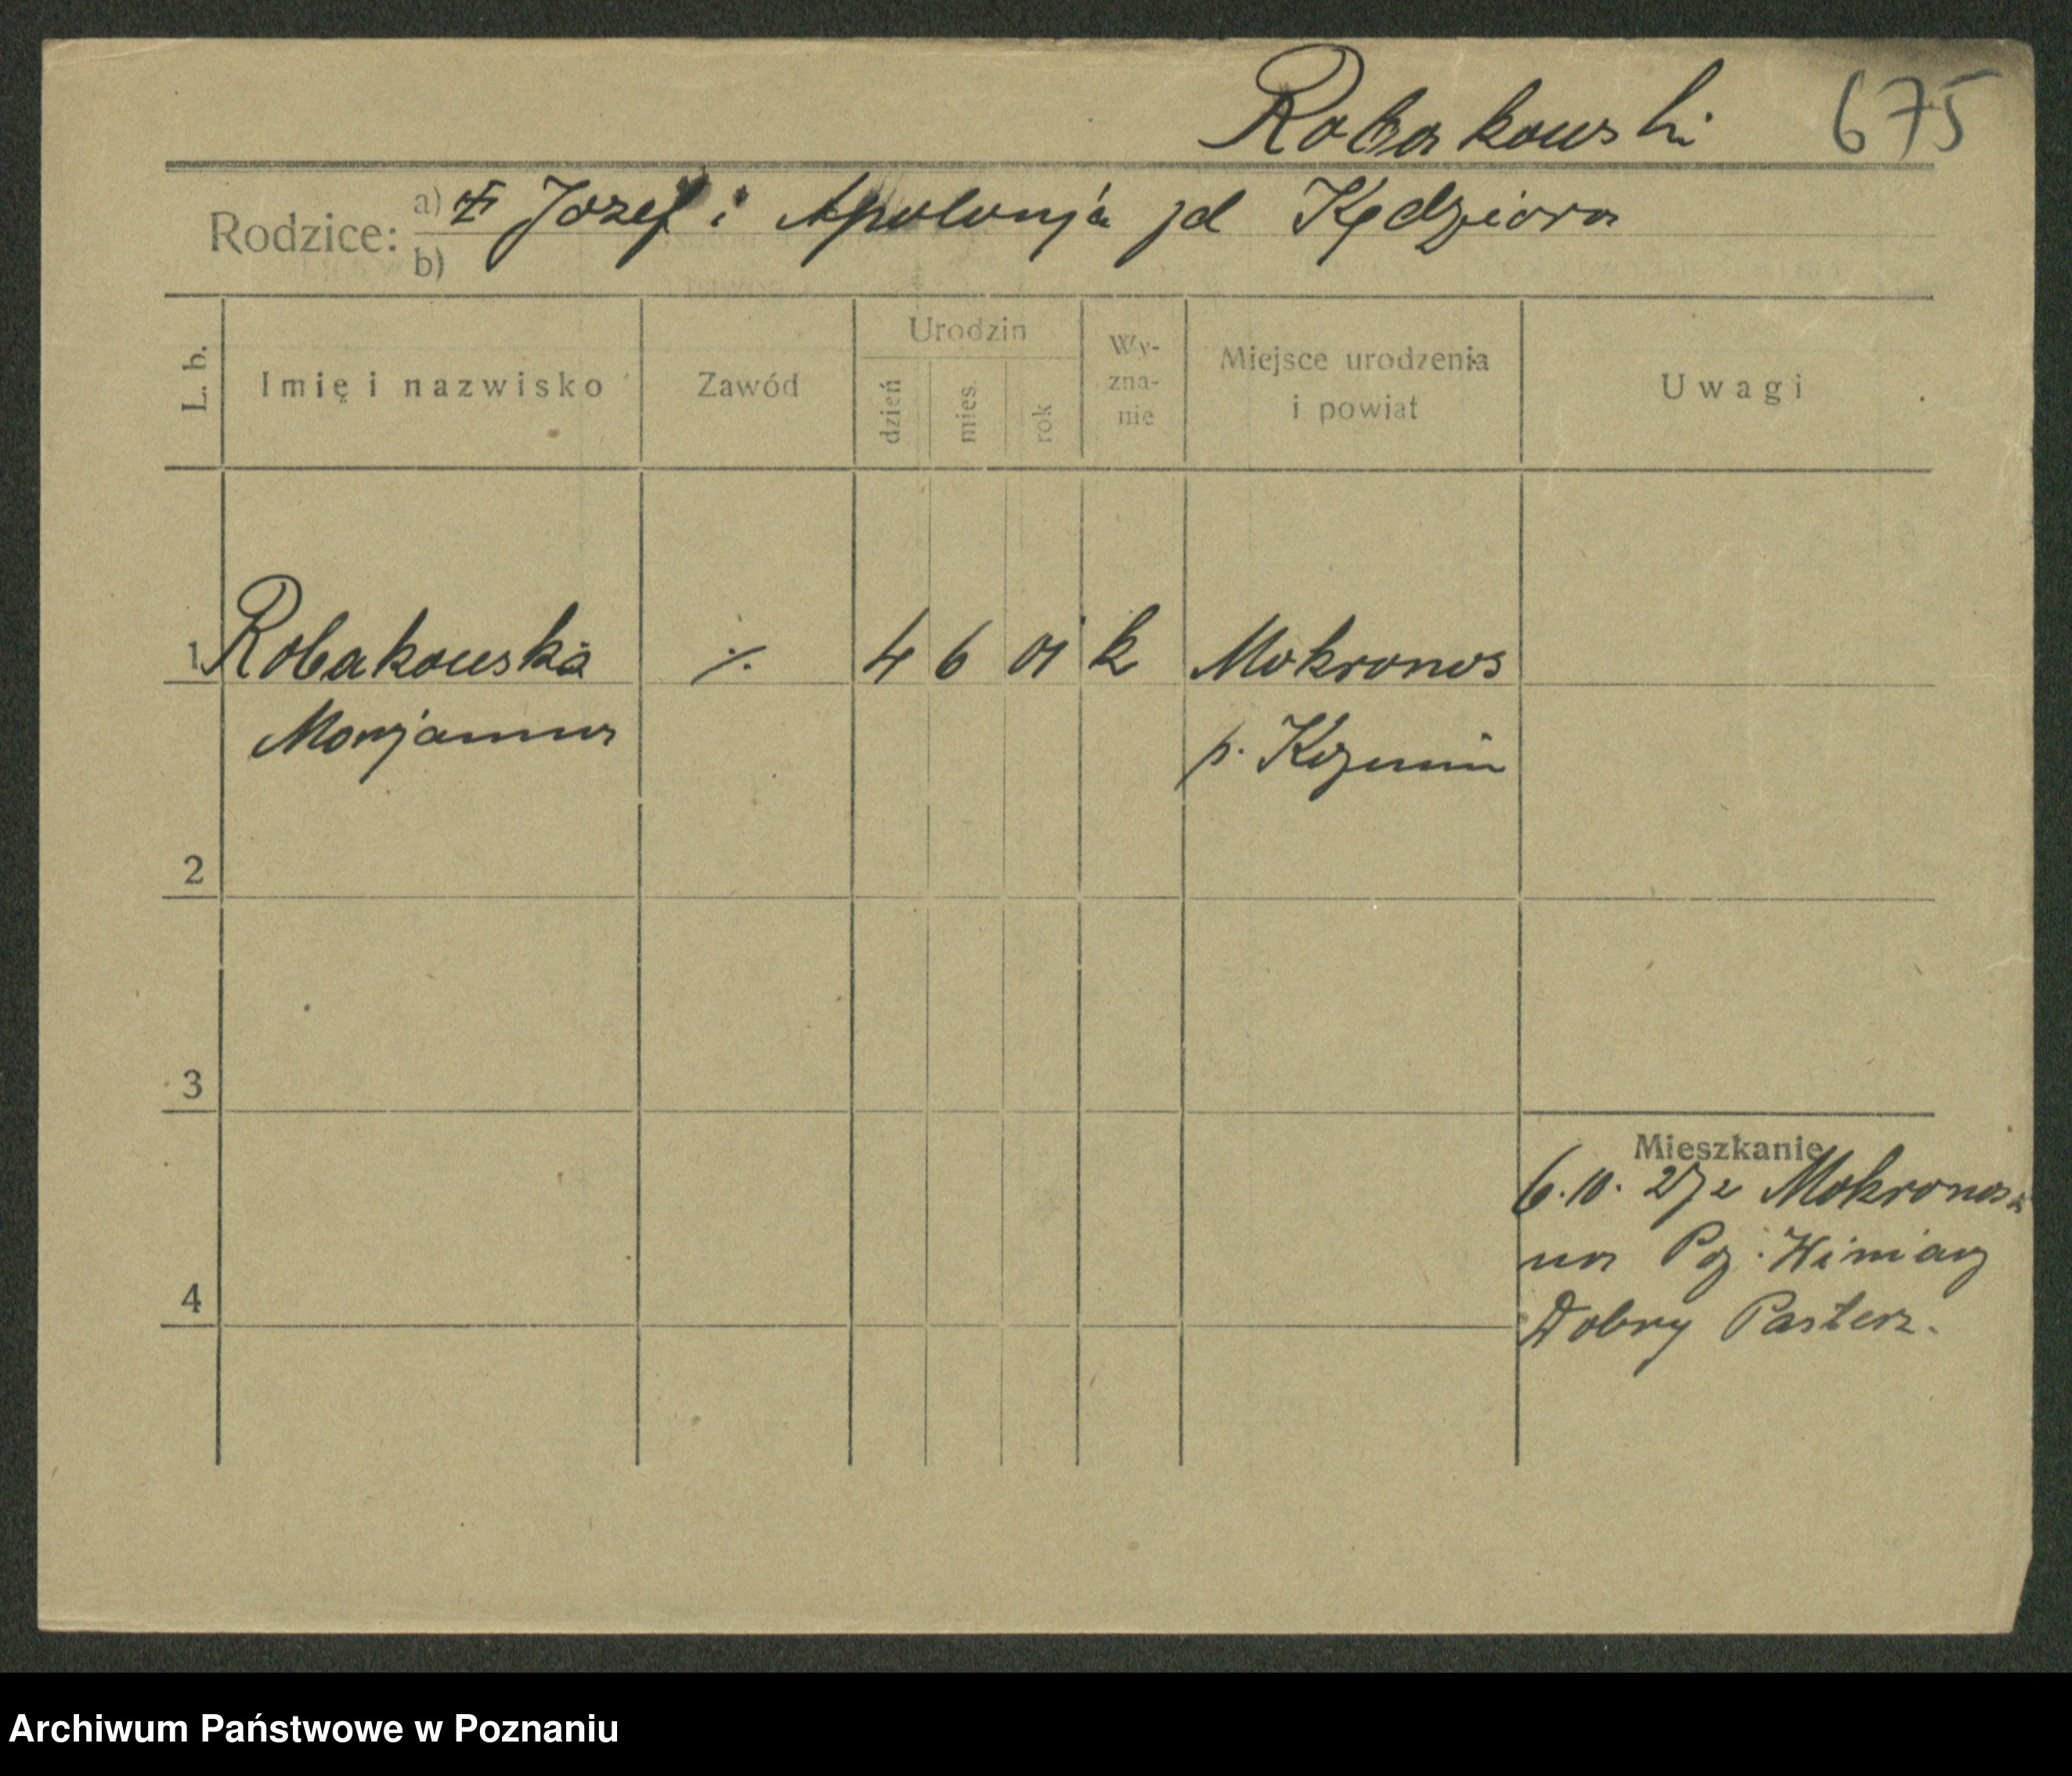 Robakowski 675
Rodzice: a) Jozef i Apolonja zd Kędziora
b)
L. b. Imię i nazwisko Zawód Urodzin dzień mies. rok Wy-zna-nie Miejsce urodzenia i powiat Uwagi
1 Robakowska ./. 4 6 01 k Mokronos
Marjanna p. Kozmin
2
3
Mieszkanie
6. 10. 27 z Mokronosa
na Poz. Winiary
4
Dobry Pasterz.
Archiwum Państwowe w Poznaniu